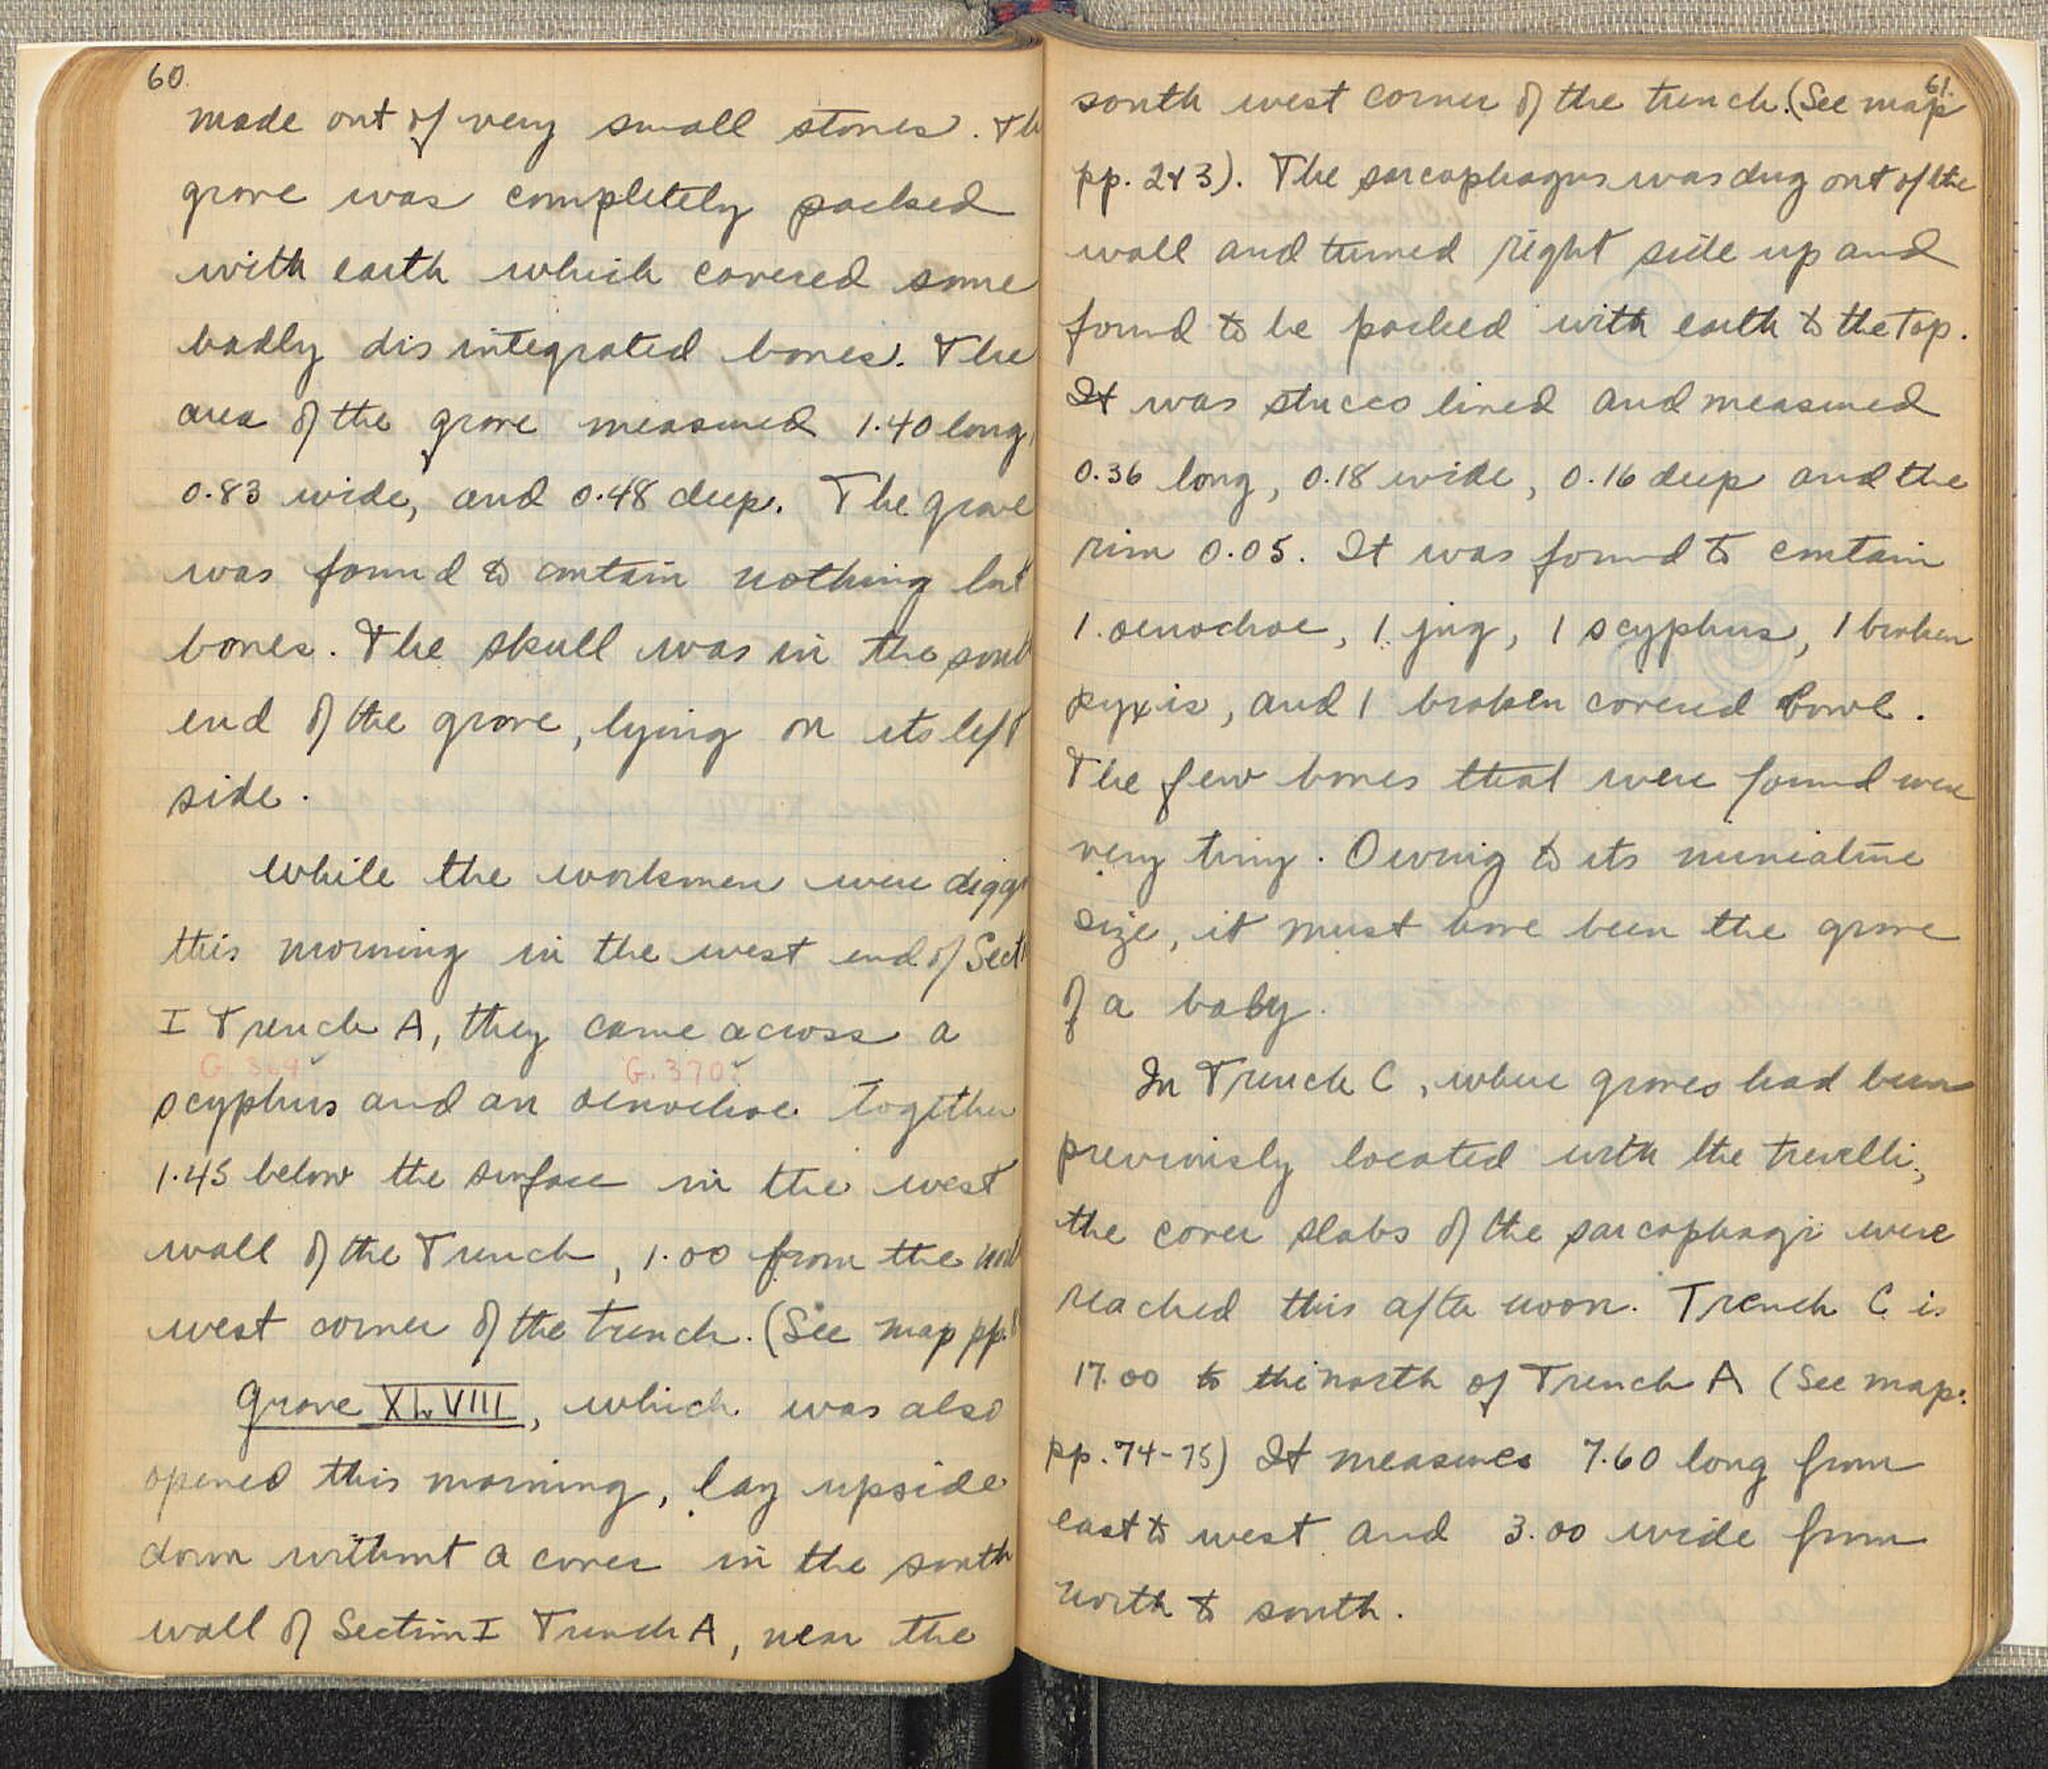 60.
made out of very small stones. Th
grave was completely packed
with earth which covered some
badly disintegrated bones. The
area of the grave measured 1.40 long,
0.83 wide, and 0.48 deep. The grave
was found to contain nothing but
bones. The skull was in the sout
end of the grave, lying on its left
side.
While the workmen were digg
this morning in the west end of Sect
I Trench A, they came across a
G. 370
scyphus and an oenochoe together
1.45 below the surface in the west
wall of the Trench, 1.00 from the
west corner of the trench. (See map pp.
Grave XLVIII, which was also
opened this morning, lay upside
down without a cover in the south
wall of Section I Trench A, near the
61.
south west corner of the trench. (See map
pp. 2 & 3). The sarcophagus was dug out of the
wall and turned right side up and
found to be packed with earth to the top.
It was stucco lined and measured
0.36 long, 0.18 wide, 0.16 deep and the
rim 0.05. It was found to contain
1 oenochoe, 1 jug, 1 scyphus, 1 broken
pyxis, and 1 broken covered bowl.
The few bones that were found were
very tiny. Owing to its miniature
size, it must have been the grave
of a baby.
In Trench C, where graves had been
previously located with the trivelli,
the cover slabs of the sarcophagi were
reached this after noon. Trench C is
17.00 to the north of Trench A (See map:
pp. 74-75) It measures 7.60 long from
east to west and 3.00 wide from
north to south.